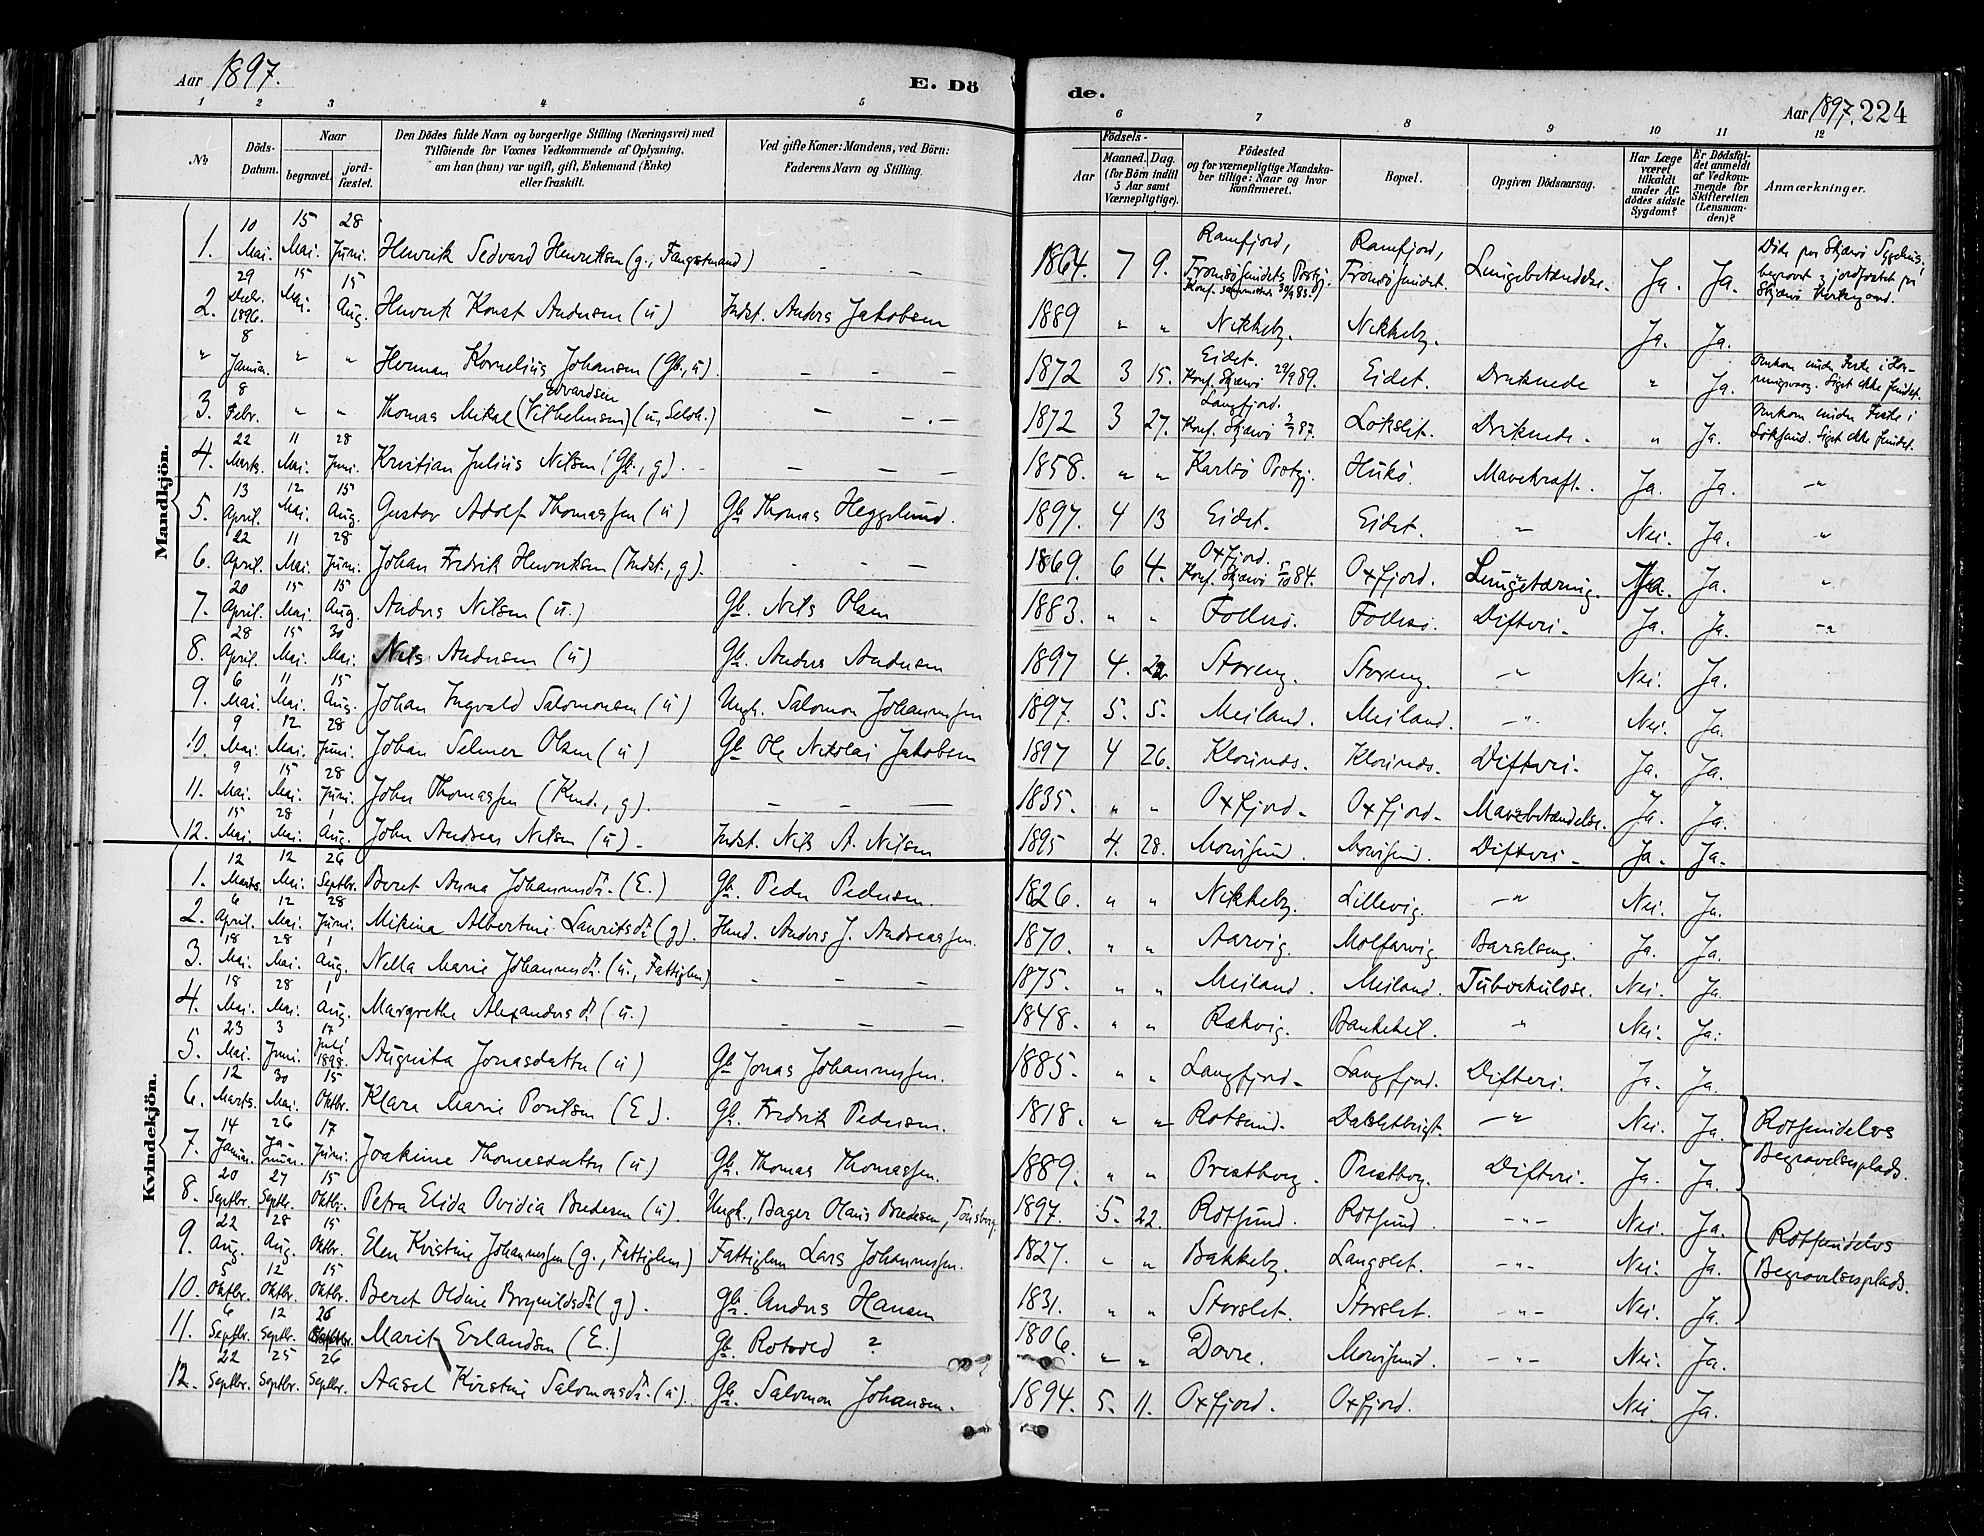 Aar 1897.
E. Dö
de.
Aar 1897. 224
1 2 3 4 5 6 7 8 9 10 11 12
No
Döds-Datum.
Naar
begravet.
jord-fæstet.
Den Dödes fulde Navn og borgerlige Stilling (Næringsvei) med
Tilföiende for Voxnes Vedkommende af Oplysning,
om han (hun) var ugift, gift, Enkemand (Enke)
eller fraskilt.
Ved gifte Koner: Mandens, ved Börn:
Faderens Navn og Stilling.
Födsels-
Aar
Maaned. Dag.
(for Börn indtil 5 Aar samt Værnepligtige).
Födested
og for værnepligtige Mandska-
ber tillige: Naar og hvor
konfirmeret.
Bopæl.
Opgiven Dödsaarsag.
Har Læge været tilkaldt under Af-dödes sidste Sygdom?
Er Dödsfal-det anmeldt af Vedkom-mende for Skifteretten (Lensman-den)?
Anmærkninger.
Mandkjön.
1. 10 Mai. 15 Mai. 28 Juni. Henrik Sedvard Henriksen (g., Fangstmand) – – 1864. 7 9. Ramfjord, Tromsösundets Prstgj. Konf. sammesteds 30/9 83. Ramfjord, Tromsösundet. Lungebetændelse. Ja. Ja. Döde paa Skjærvö Sygehus, begravet & jordfæstet paa Skjærvö Kirkegaard.
2. 29 Decbr. 1896. 15 Mai. 15 Aug. Henrik Konst Andersen (u) Indst. Anders Jakobsen 1889 " " Nikkeby. Nikkeby. Ja. Ja.
" 8 Januar. " " Herman Kornelius Johansen (Gb., u). – – – 1872 3 15. Eidet. Konf. Skjærvö 29/9 89. Eidet. Druknede " Ja. Omkom under Fiske i . Liget ikke fundet.
3. 8 Febr. " " Thomas Mekal (Vilhelmsen) Edvardsen (u, Selvh.) – – 1872 3 27. Langfjord. Konf. Skjærvö 87. Lökslet. Druknede. " Ja. Omkom under Fiske i . Liget ikke fundet.
4. 22 Marts. 11 Mai. 28 Juni. Kristian Julius Nilsen (Gb., g). – – – 1858. " " Karlsö Prstgj. Hukö. Mavekræft. Ja. Ja. "
5. 13 April. 12 Mai. 15 Aug. Gustav Adolf Thomassen (u) Gb Thomas Heggelund. 1897. 4 13 Eidet. Eidet. " Nei. Ja. "
6. 22 April. 11 Mai. 28 Juni. Johan Fredrik Henriksen (Indst., g). – – 1869. 6 4. Oxfjord. Konf. Skjærvö 5/10 84. Oxfjord. Lungetæring. Ja. Ja "
7. 20 April. 15 Mai. 15 Aug. Anders Nilsen (u.) Gb. Nils Olsen 1883. " " Follesö. Follesö. Difteri. Ja. Ja. "
8. 28 April. 15 Mai. 30 Mai. Nils Andersen (u) Gb. Anders Andersen 1897 4. Storeng. Storeng. " Nei. Ja.
9. 6 Mai. 11 Mai. 15 Aug. Johan Ingvald Salomonsen (u) Ungk. Salomon Johannessen 1897. 5. 5. Meiland. Meiland. " Nei. Ja.
10. 9 Mai. 12 Mai. 28 Juni. Johan Selmer Olsen (u) Gb Ole Nikolai Jakobsen 1897 4 26. Klovnes. Klovnes. Difteri. Ja. Ja.
11. 9 Mai. 15 Mai. 28 Juni. John Thomassen (Kmd., g). – – – 1835. " " Oxfjord. Oxfjord. Mavebetændelse. Ja. Ja.
12. 15 Mai. 28 Mai. 1 Aug. John Andreas Nilsen (u). Indst. Nils A. Nilsen 1895 4. 28. Morisund. Morisund. Difteri. Ja. Ja.
Kvindekjön.
1. 12 Marts. 12 Mai. 26 Septbr. Beret Anna Johannesdr. (E.) Gb. Peder Pedersen. 1826. " " Nikkeby. Lillevig. " Nei. Ja.
2. 6 April. 12 Mai. 28 Juni. Mikina Albertine Lauritsdr (g). Husd. Anders J. Andreassen. 1870. " " Aarvig. Molfarvig Barselseng. Ja. Ja.
3. 18 Mai. 28 Mai. 1 Aug. Nella Marie Johannesdr. (u., Fattiglem) – – – 1875. " " Meiland. Meiland. Tuberkulose. Nei. Ja.
4. 18 Mai. 28 Mai. 1 Aug. Margrethe Alexandersdr (u.) – – – 1848. " " Rækvig. Bankekeil. " Nei. Ja.
5. 23 Mai. 3 Juni. 17 Juli 1898. Augusta Jonasdatter (u) Gb Jonas Johannessen. 1885. " " Langfjord. Langfjord. Difteri. Ja. Ja.
6. 12 Marts. 30 Mai. 15 Oktbr. Klara Marie Poulsen (E). Gb. Fredrik Pedersen. 1818. " " Rotsund. " Nei. Ja. Rotsundelvs Begravelsesplads.
7. 14 Januar. 26 Januar. 17 Juni. Joakime Thomasdatter (u) Gb. Thomas Thomassen. 1889. " " Prestborg. Prestborg. Difteri. Ja. Ja.
8. 20 Septbr. 27 Septbr. 15 Oktbr. Petra Elida Ovidia Bredesen (u). Ungk., Bager Olaus Bredesen, Tönsberg 1897. 5. 22. Rotsund. Rotsund. " Nei. Ja. Rotsundelvs Begravelsesplads.
9. 22 Aug. 28 Aug. 15 Oktbr. Elen Kristine Johannessen (g., Fattiglem) Fattiglem Lars Johannessen. 1827. " " Bakkeby. Langslet. " Nei. Ja.
10. 5 Oktbr. 12 Oktbr. 15 Oktbr. Beret Oldine Brynildsdr (g). Gb. Anders Hansen 1831. " " Storslet. Storslet. " Nei. Ja.
11. 6 Septbr. 12 Septbr. 26 Septbr. Marit Erlandsen (E.) Gb. Rotvold ? 1806. " " Dovre. Morisund. " Nei. Ja.
12. 22 Septbr. 25 Septbr. 26 Septbr. Aasel Kirstine Salomonsdr. (u). Gb. Salomon Johansen. 1894. 5. 11. Oxfjord. Oxfjord. Nei. Ja.